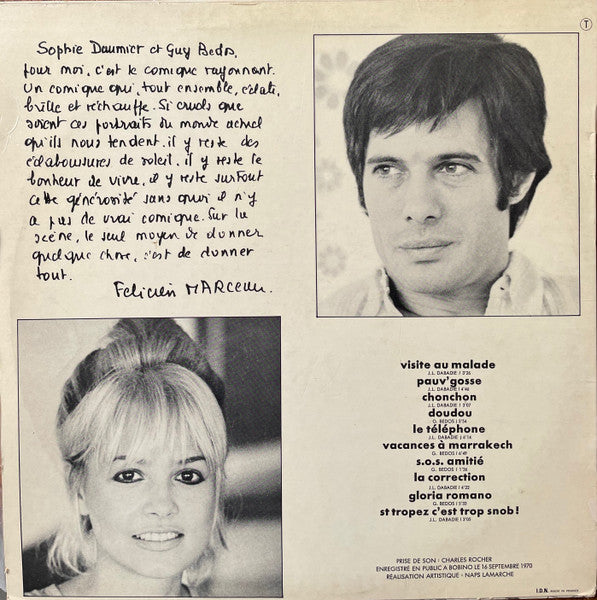 T
Sophie Daumier et Guy Bedos,
pour moi, c'est le comique rayonnant.
Un comique qui, tout ensemble, éclate,
brille et réchauffe. Si cruels que
soient ces portraits du monde actuel
qu'ils nous tendent, il y reste des
éclaboussures de soleil, il y reste le
bonheur de vivre, il y reste surtout
cette générosité sans quoi il n'y
a pas de vrai comique. Sur la
scène, le seul moyen de donner
quelque chose, c'est de donner
tout.
Félicien MARCEAU.
visite au malade
J.L. DABADIE / 5'35
pauv'gosse
J.L. DABADIE / 4'46
chonchon
J.L. DABADIE / 3'07
doudou
G. BEDOS / 5'54
le téléphone
J.L. DABADIE / 4'14
vacances à marrakech
G. BEDOS / 6'49
s.o.s. amitié
G. BEDOS / 1'26
la correction
J.L. DABADIE / 4'22
gloria romano
G. BEDOS / 5'35
st tropez c'est trop snob!
J.L. DABADIE / 3'05
PRISE DE SON : CHARLES ROCHER
ENREGISTRÉ EN PUBLIC A BOBINO LE 16 SEPTEMBRE 1970
RÉALISATION ARTISTIQUE : NAPS LAMARCHE
I.D.N. MADE IN FRANCE